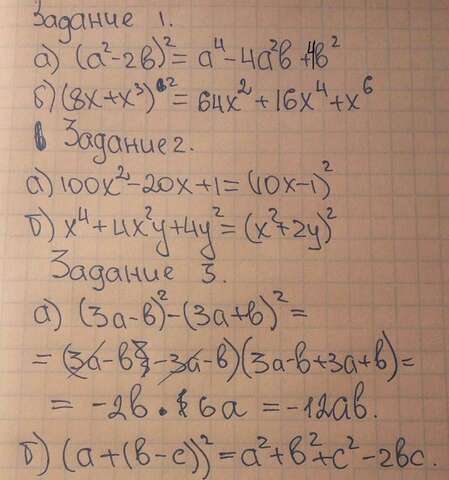 Задание 1.
а) (a²-2b)² = a⁴-4a²b+4b²
б) (8x+x³)² = 64x²+16x⁴+x⁶
Задание 2.
а) 100x²-20x+1=(10x-1)²
б) x⁴+4x²y+4y²=(x²+2y)²
Задание 3.
а) (3a-b)²-(3a+b)²=
= (3a-b-3a-b)(3a-b+3a+b)=
= -2b·6a = -12ab.
б) (a+(b-c))²=a²+b²+c²-2bc.